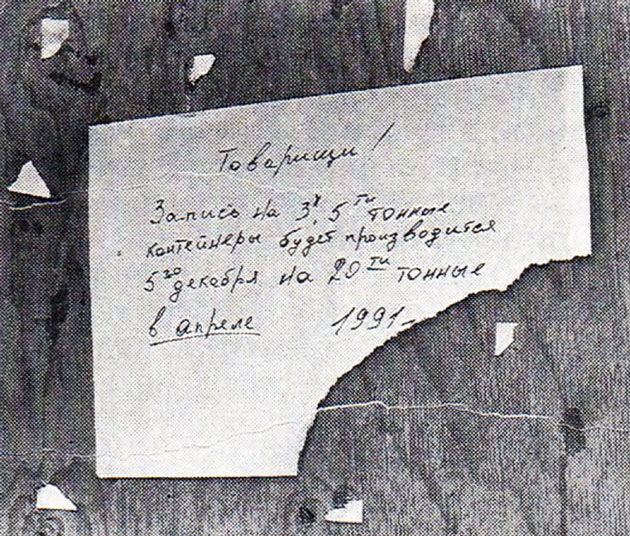 Товарищи!
Запись на 3х, 5ти тонные
контейнеры будет производится
5го декабря на 20ти тонные
в апреле 1991-